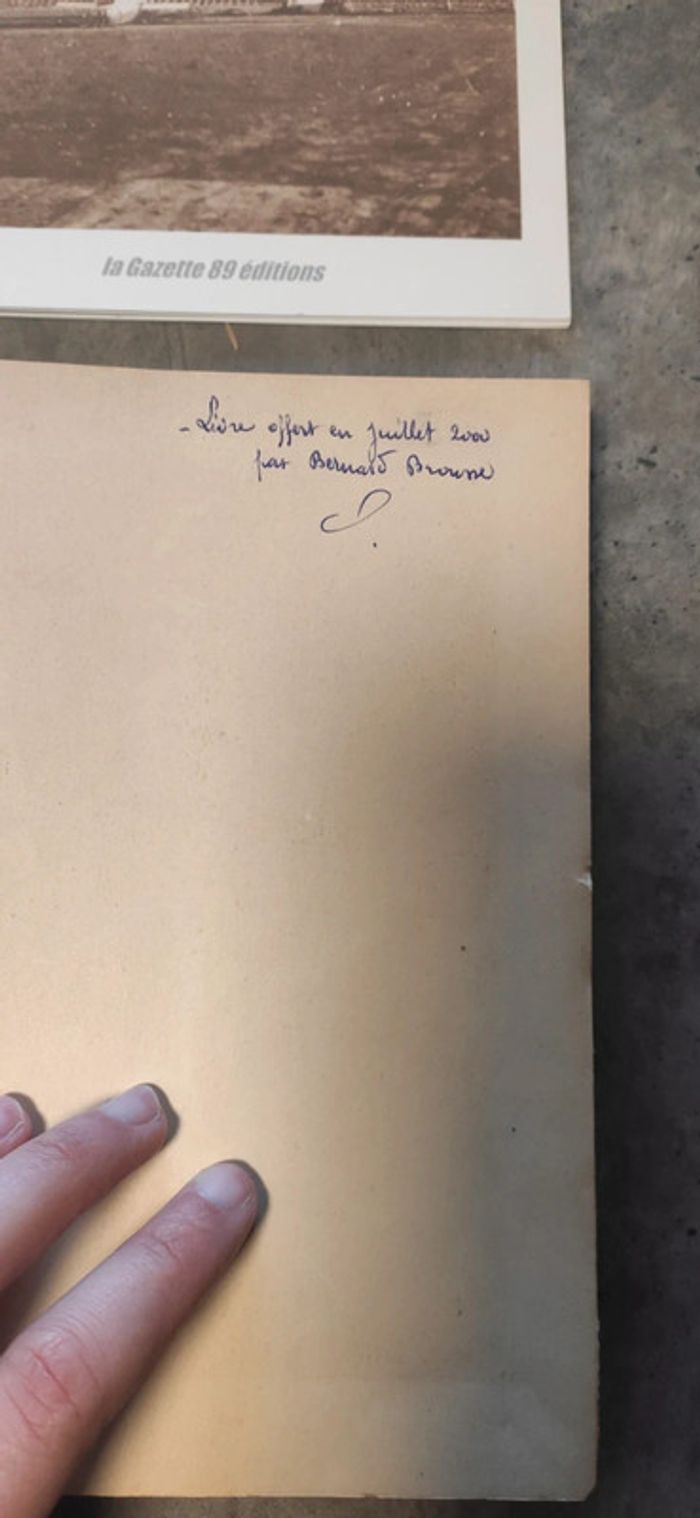 la Gazette 89 éditions
- Livre offert en juillet 2000
par Bernard Brousse